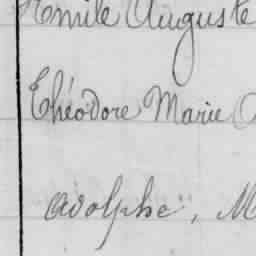 Emile Auguste
Théodore Marie
Adolphe, M